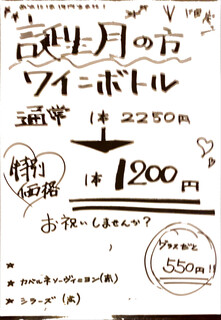 誕生月の方
ワイニボトル
通常 1本 2250円
特別価格 1本 1200円
お祝いしませんか?
グラスだと
550円!!
★ カベルネソーヴィニヨン(赤)
★ シラーズ (赤)